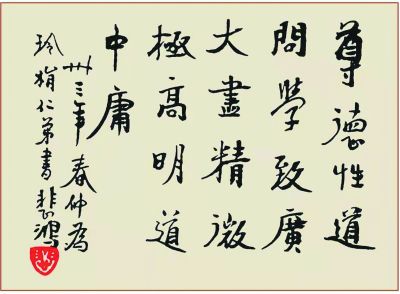 尊德性道
問學致廣
大盡精微
極高明道
中庸
卅三年春仲為
玲娟仁弟書 悲鴻